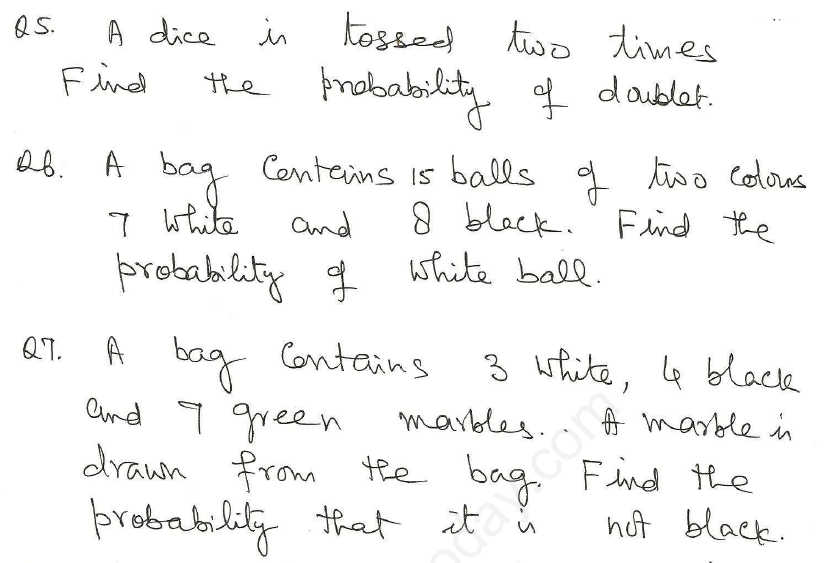 Q5. A dice is tossed two times
Find the probability of doublet.
Q6. A bag Contains 15 balls of two colours
7 white and 8 black. Find the
probability of white ball.
Q7. A bag Contains 3 white, 4 black
and 7 green marbles. A marble is
drawn from the bag. Find the
probability that it is not black.
oday.com